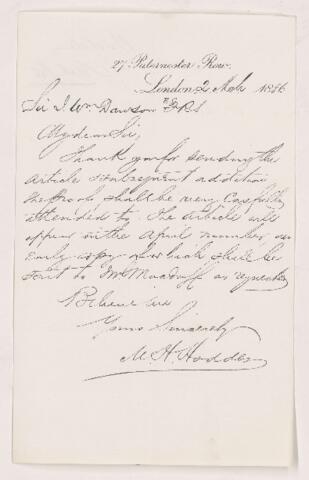 27 Paternoster Row.
London 2 Mch 1886
Sir J Wm Dawson FRS
My dear Sir,
Thank you for sending the
article & subsequent addition
the proof shall be very carefully
attended to. The article will
appear in the April number an
early copy of which shall be
sent to Mr as requested
Believe me
Yours Sincerely
M. H. Hodder